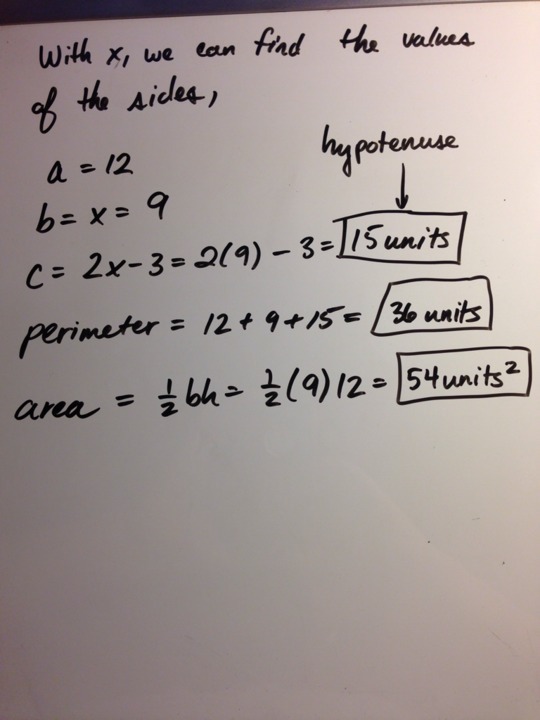 With x, we can find the values
of the sides,
hypotenuse
a = 12
b = x = 9
c = 2x - 3 = 2(9) - 3 = 15 units
perimeter = 12 + 9 + 15 = 36 units
area = ½ bh = ½ (9) 12 = 54 units²